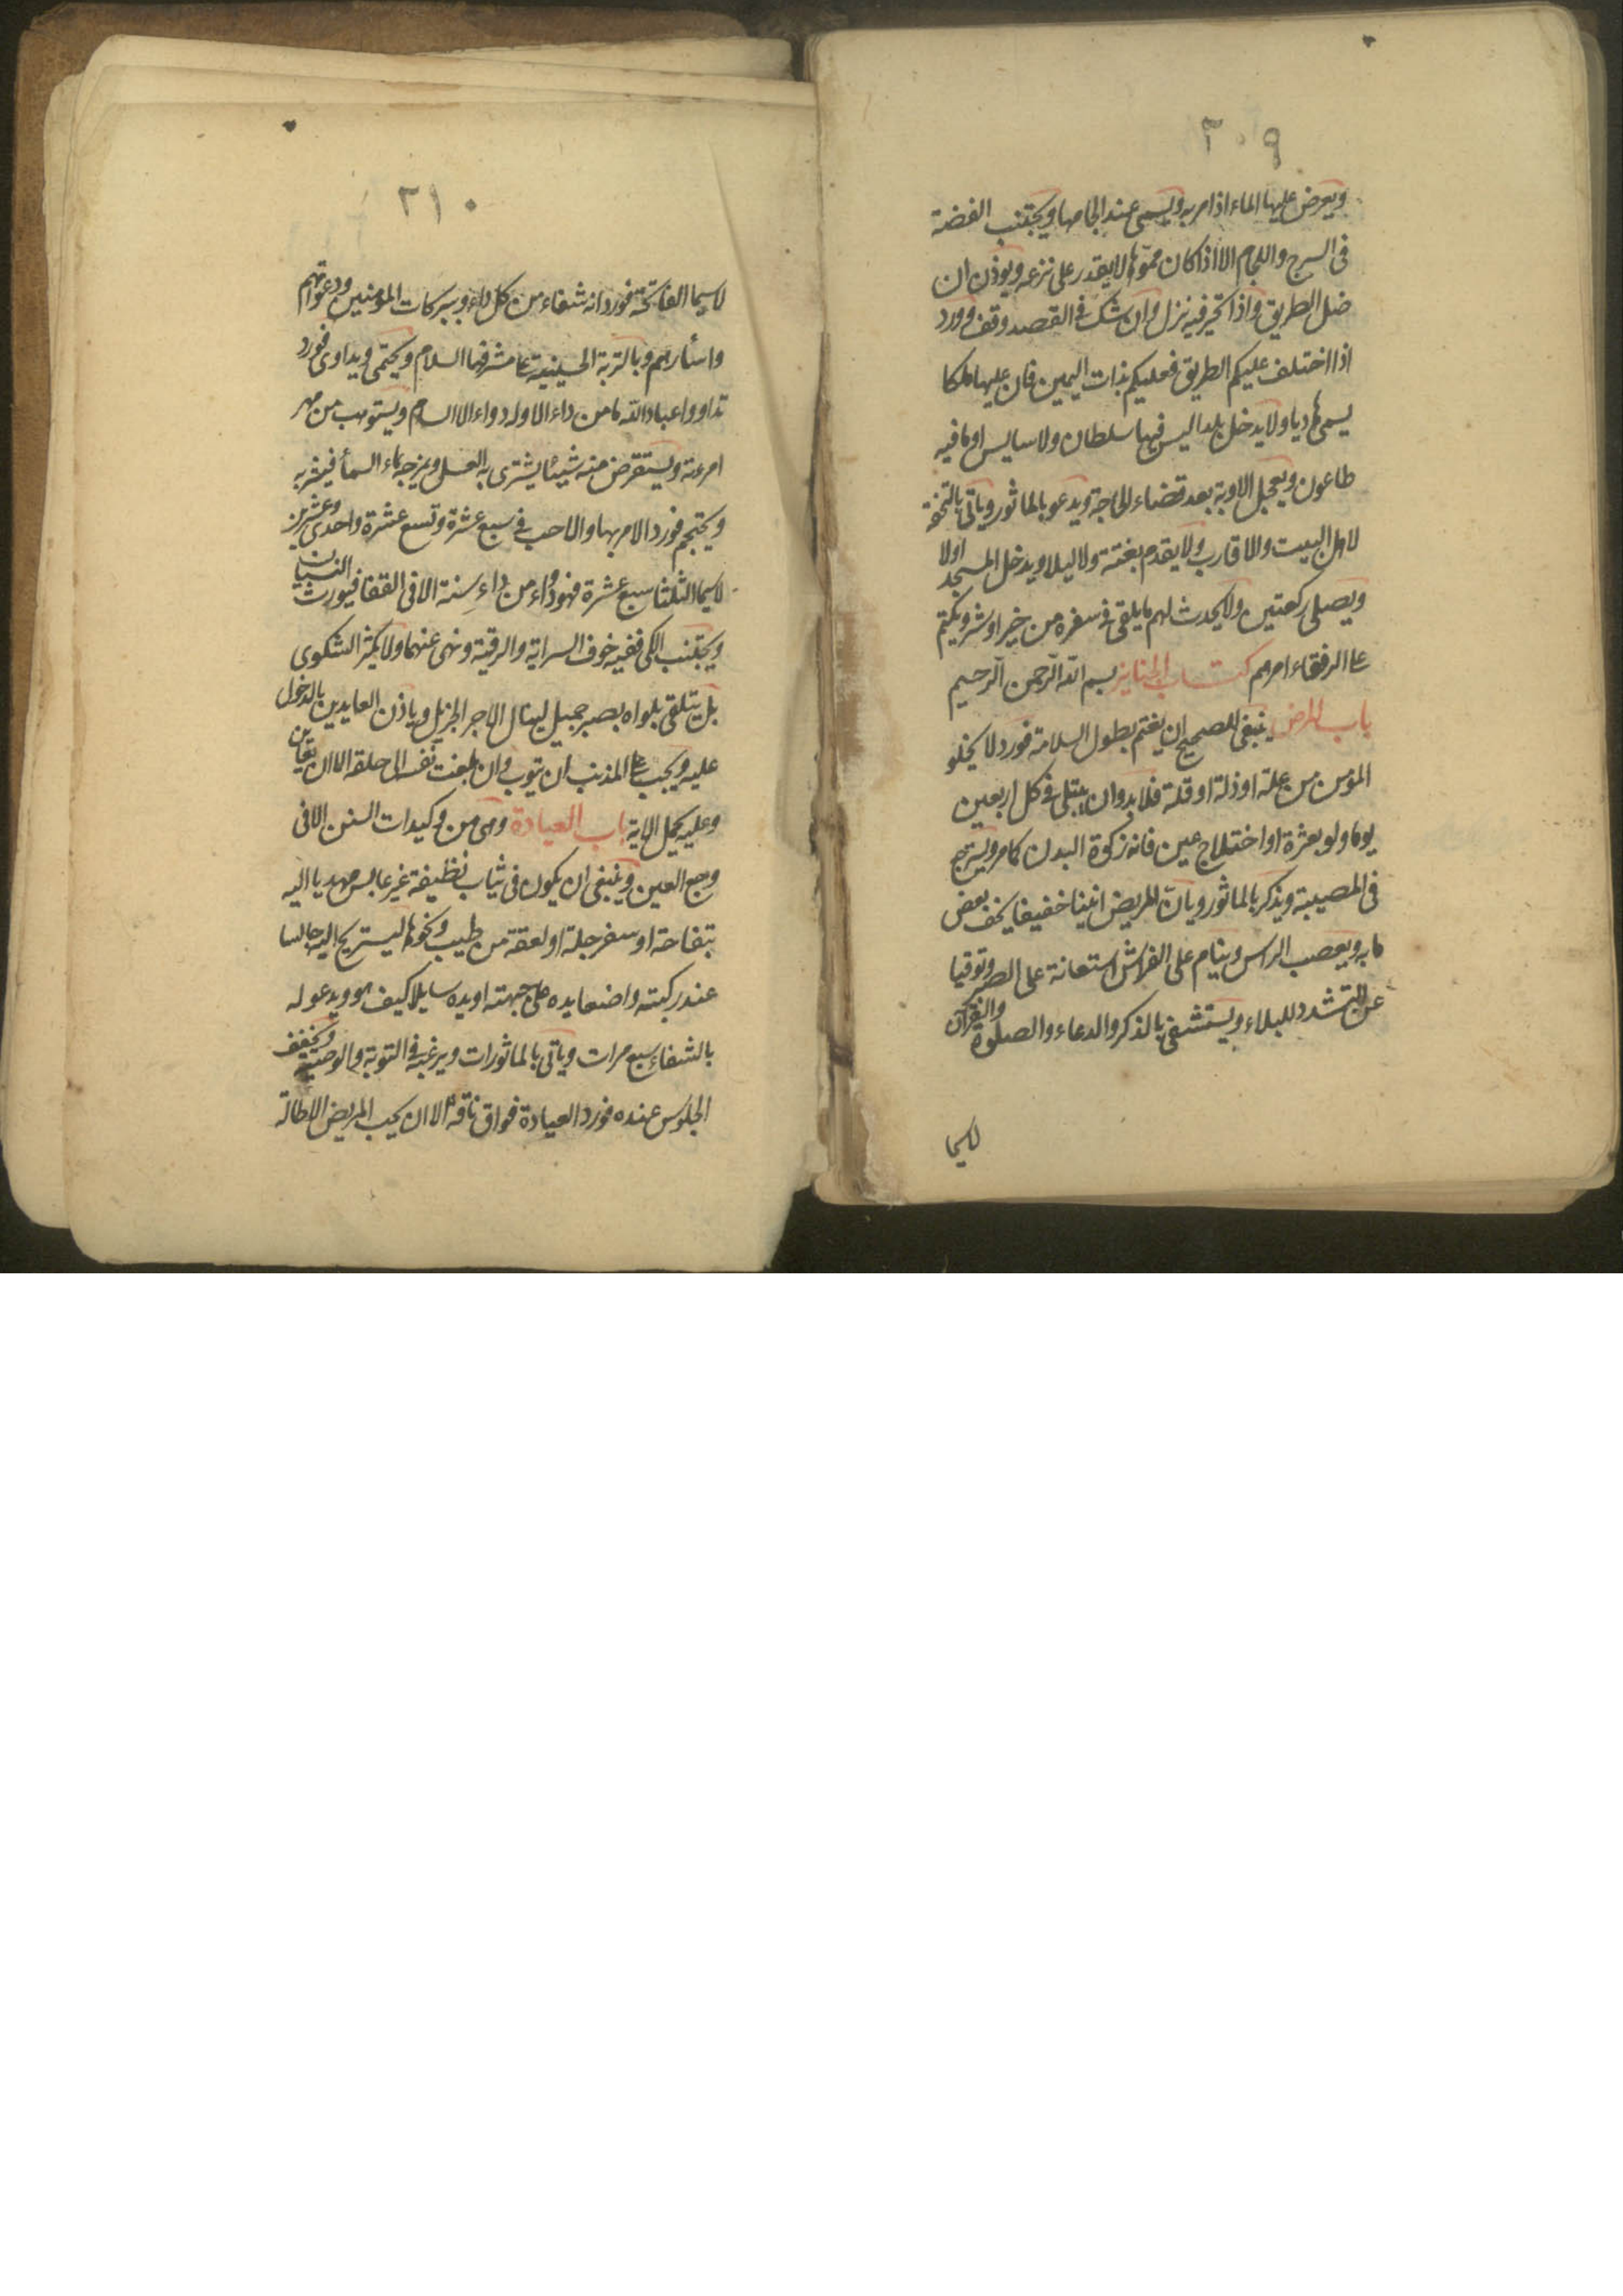 ٣٠٩
ويعرض عليها الماء اذا مر به ويسمى عند الجامها ويجتنب الفضة
فى السرج واللجام الا اذا كان مموها لا يقدر على نزعه ويوذن ان
ضل الطريق واذا تحير فيه نزل وان شك فى القصد وقف وورد
اذا اختلف عليكم الطريق فعليكم بذات اليمين فان عليها ملكا
يسمى هاديا ولا يدخل بلدا ليس فيها سلطان ولا سايس او ما فيه
طاعون ويعجل الاوبة بعد قضاء الحاجة ويدعو بالماثور وياتى بالتحفة
لاهل البيت والاقارب ولا يقدم بغتة ولا ليلا ويدخل المسجد اولا
ويصلى ركعتين ولا يحدث لهم ما يلقى فى سفره من خير او شر ويكتم
على الرفقاء امرهم كتاب الجنايز بسم الله الرحمن الرحيم
باب المرض ينبغى للصحيح ان يغتم بطول السلامة فورد لا يخلو
المؤمن من علة او ذلة او قلة فلا بد وان يبتلى فى كل اربعين
يوما ولو بعثرة او اختلاج عين فانه زكوة البدن كما مر ويسترجع
فى المصيبة ويذكر بالماثور ويان المريض انينا خفيفا يخف بعض
ما به ويعصب الراس وينام على الفراش استعانة على الصبر وتوقيا
عن التشدد للبلاء ويستشفى بالذكر والدعاء والصلوة والقرآن
لاسيما
٣١٠
لاسيما الفاتحة فورد انه شفاء من كل داء وببركات المؤمنين ودعواتهم
واسئارهم وبالتربة الحسينية على مشرفها السلام ويحتمى ويداوى فورد
تداووا عباد الله ما من داء الا وله دواء الا السام ويستوهب من مهر
امرءته ويستقرض منه شيئا يشترى به العسل ويمزجه بماء السماء فيشربه
ويحتجم فورد الامر بها والاحب فى سبع عشرة وتسع عشرة واحدى وعشرين
لاسيما الثلثا سبع عشرة فهو دواء من داء سنة الا فى القفا فيورث النسيان
ويجتنب الكى ففيه خوف السراية والرقية ونهى عنهما ولا يكثر الشكوى
بل يتلقى بلواه بصبر جميل لينال الاجر الجزيل وياذن العايدين بالدخول
عليه ويجب على المذنب ان يتوب وان بلغت نفسه الى حلقه الا ان يعاين
وعليه يحمل الاية باب العيادة وهى من وكيدات السنن الا فى
وجع العين وينبغى ان يكون فى ثياب نظيفة غير عابس مهديا اليه
بتفاحة او سفرجلة او لعقة من طيب ونحوها ليستريح اليه جالسا
عند ركبته واضعا يده على جبهته او يده سايلا كيف هو ويدعو له
بالشفاء سبع مرات وياتى بالماثورات ويرغبه فى التوبة والوصية ويخفف
الجلوس عنده فورد العيادة فواق ناقة الا ان يحب المريض الاطالة